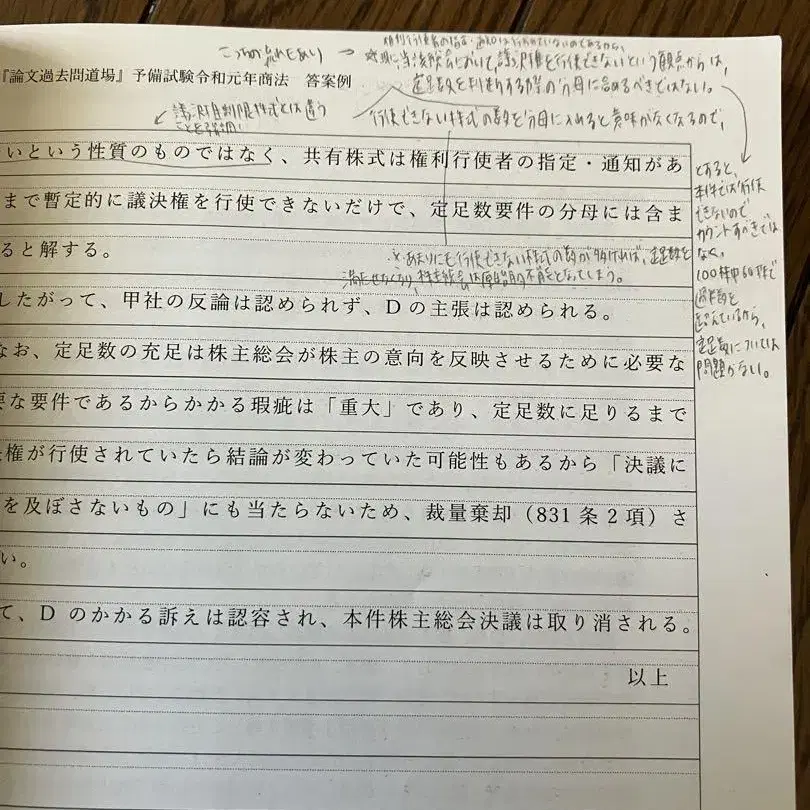 こっちの流れもあり →
権利行使者の指定・通知は行われていないのであるから、
現に当該総会において、議決権を行使できないという観点からは、
定足数を判断する際の分母に含めるべきではない。
『論文過去問道場』予備試験令和元年商法 答案例
議決権制限株式とは違う
行使できない株式の数を分母に入れると意味がなくなるので、
いという性質のものではなく、共有株式は権利行使者の指定・通知があ
まで暫定的に議決権を行使できないだけで、定足数要件の分母には含ま
ると解する。
∵あまりにも行使できない株式の数が多ければ、定足数を
満たせなくなり、株主総会は開催不能となってしまう。
したがって、甲社の反論は認められず、Dの主張は認められる。
なお、定足数の充足は株主総会が株主の意向を反映させるために必要な
要な要件であるからかかる瑕疵は「重大」であり、定足数に足りるまで
権が行使されていたら結論が変わっていた可能性もあるから「決議に
を及ぼさないもの」にも当たらないため、裁量棄却（831条2項）さ
い。
て、Dのかかる訴えは認容され、本件株主総会決議は取り消される。
以上
とすると、
本件では行使
できないので
カウントすべきでは
なく、
100株中60株で
過半数を
超えているから、
定足数については
問題がない。